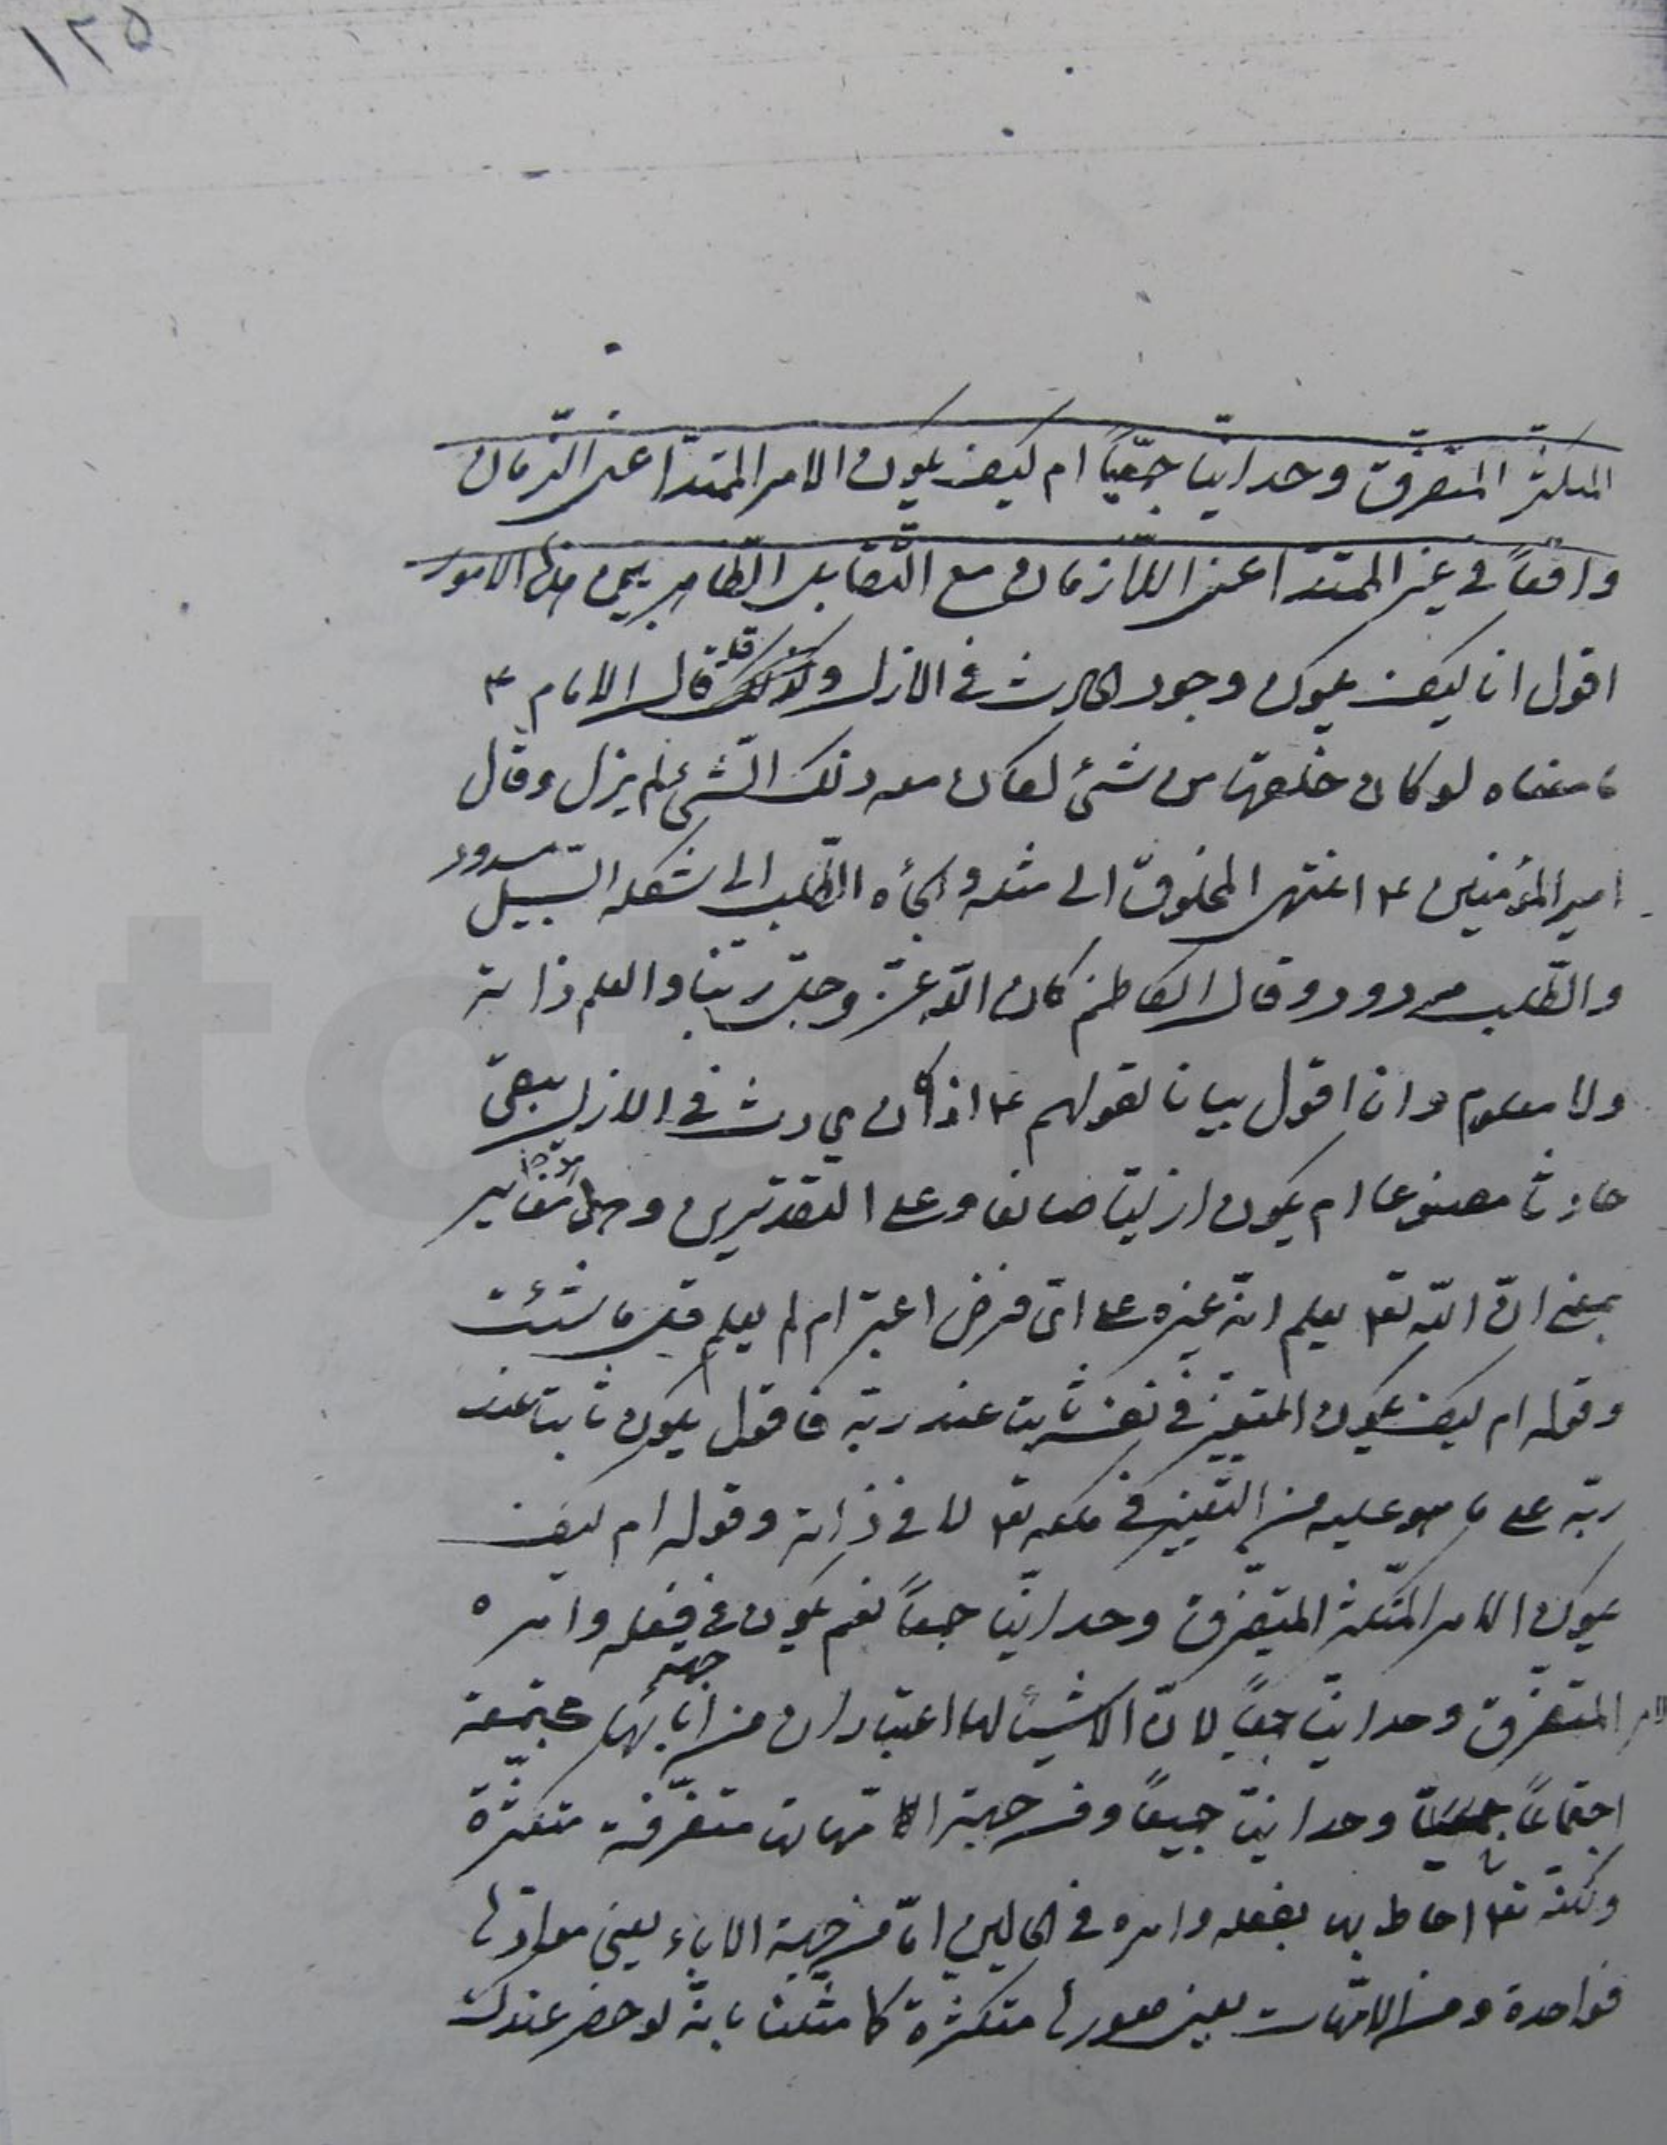 ١٢٥
المتكثر المتفرق وحدانيا جمعيّاً ام كيف يكون الامر الممتد اعنى الزمان
واقعاً فى غير الممتد اعنى اللازمان مع التقابل الظاهر بين هذه الامور
اقول انا كيف يكون وجود الحادث فى الازل وكذلك قد قال الامام ع
ما معناه لو كان خلقها من شئ لكان معه ذلك الشئ لم يزل وقال
امير المؤمنين ع انتهى المخلوق الى مثله والجأه الطلب الى شكله السبيل مسدود
والطلب مردود وقال الكاظم كان الله عزّ وجلّ ربنا والعلم ذاته
ولا معلوم وانا اقول بيانا لقولهم ع اذا كان حادث فى الازل يبقى
حادثا مصنوعا ام يكون ازليا صانعا وعلى التقديرين وهل مغاير
بمعنى انّ الله تعا يعلم انه غيره على اىّ فرض اعتبر ام لم يعلم قل ما شئت
وقوله ام كيف يكون المتغير فى نفسه ثابت عند ربّه فاقول يكون ثابتا عند
ربّه على ما هو عليه من التغير فى ملكه تعا لا فى ذاته وقوله ام كيف
يكون الامر المتكثر المتفرق وحدانيّا جمعاً نعم يكون فى فعله وامره
الامر المتفرّق وحدانيا جمعيا لانّ الاشياء لها اعتباران من جهة ابائها مجتمعة
اجتماعاً جمعيّا وحدانيّا جميعاً ومن جهة الامهات متفرّقة متكثرة
ولكنه تعا احاط بها بفعله وامره فى الحالين امّا من جهة الاباء يعنى موادّها
فواحدة ومن الامّهات يعنى صورها متكثرة كما مثّلنا بانّه لو حضر عندك